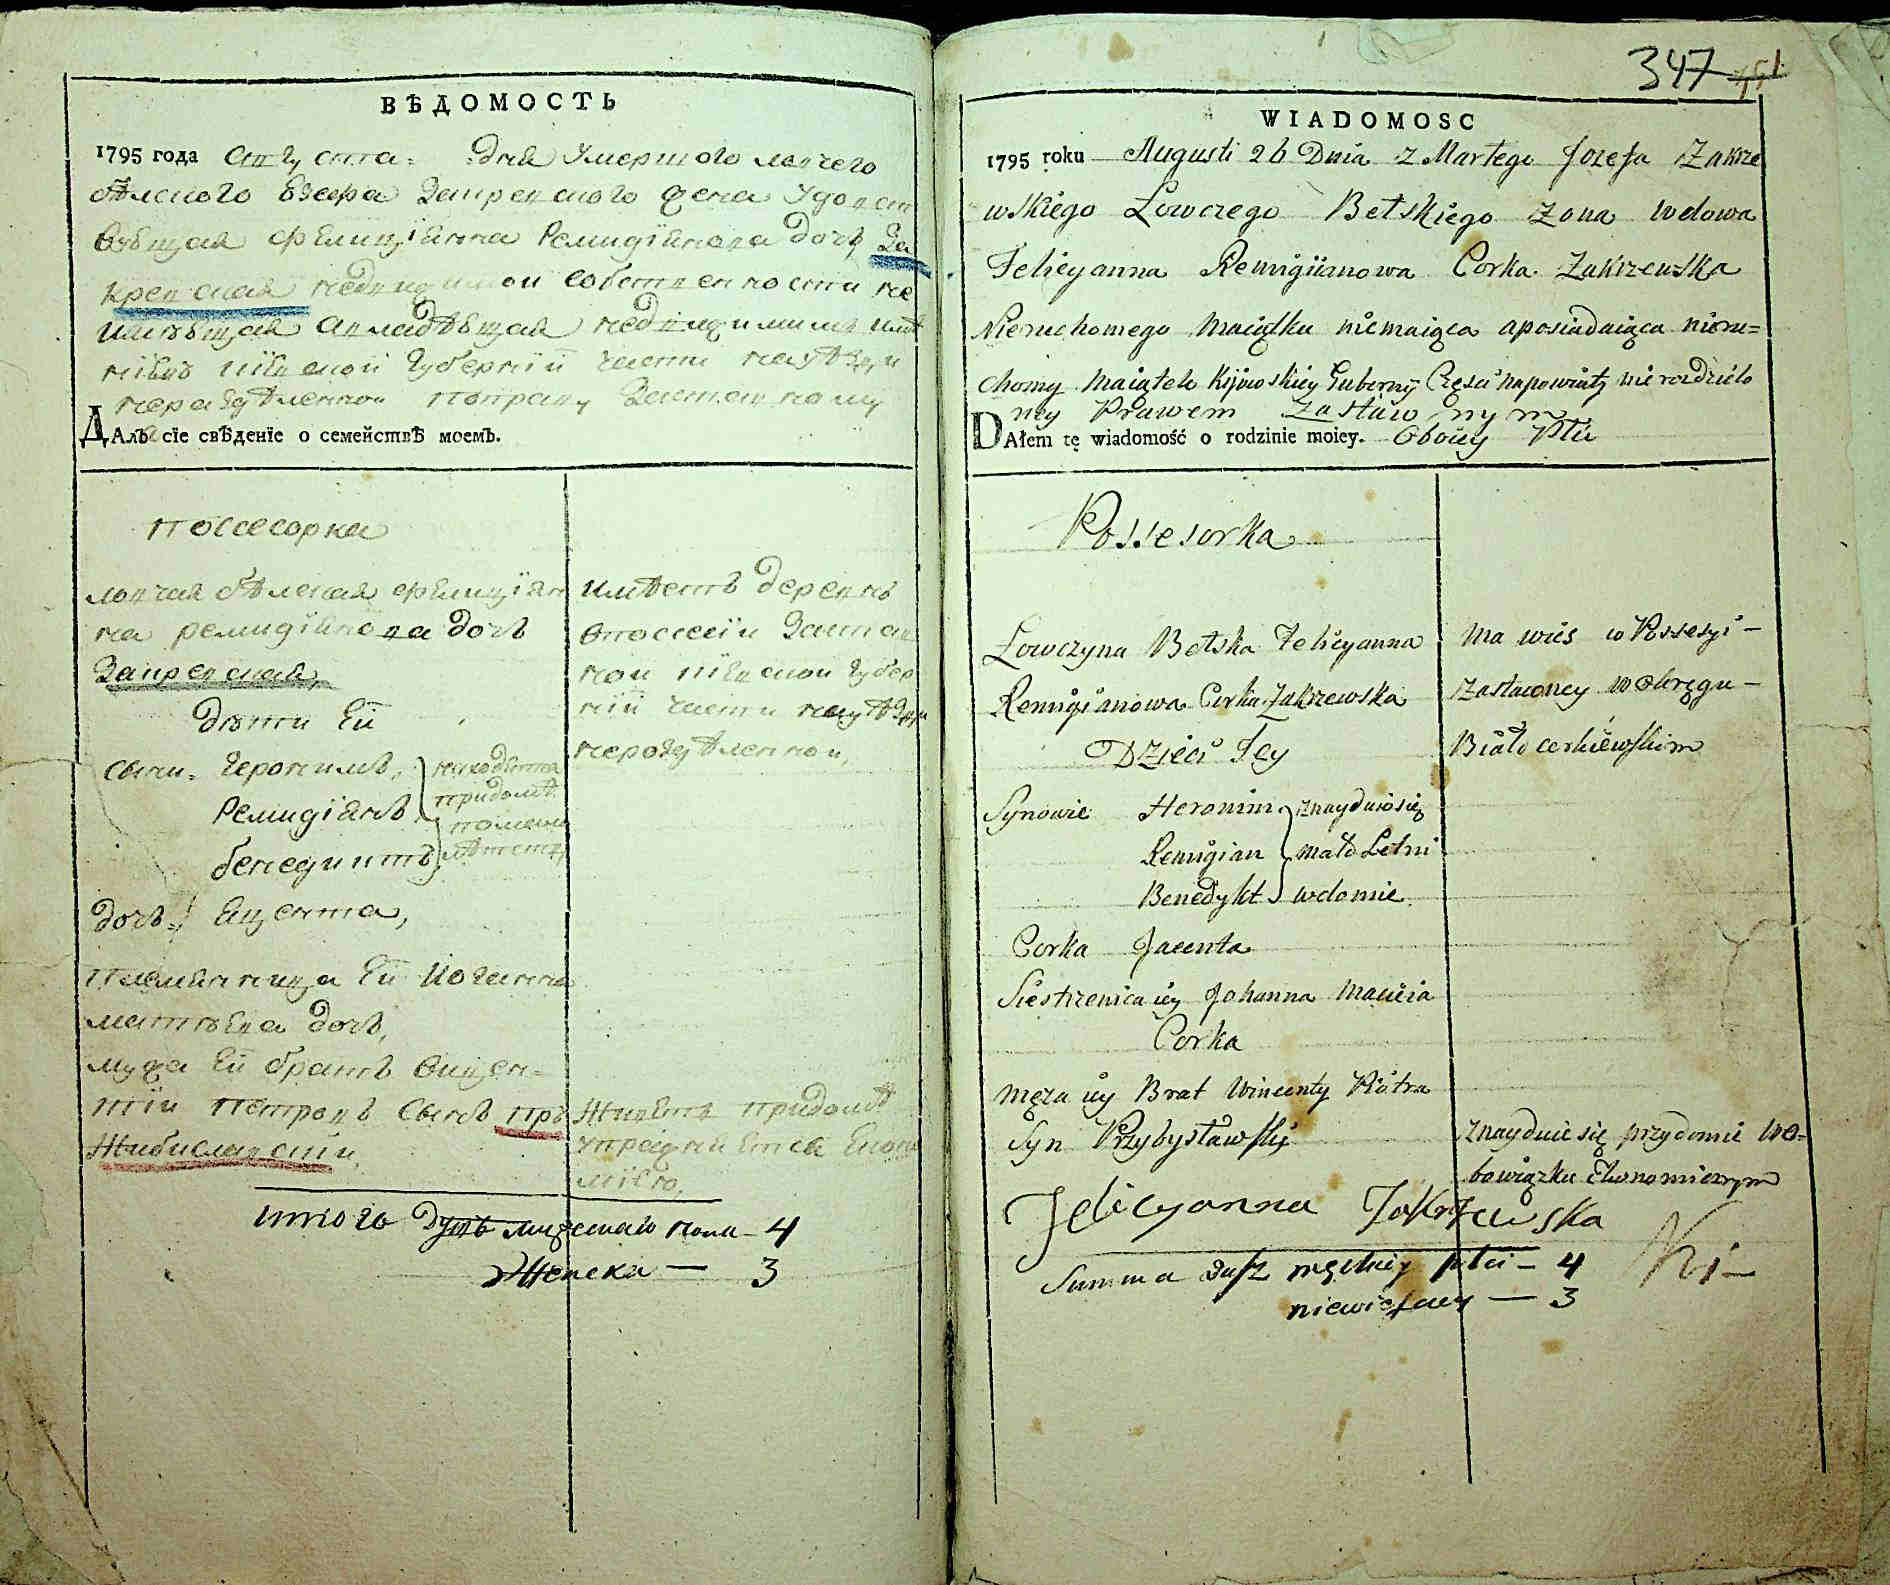 ВѢДОМОСТЬ
1795 года августа: дня Умершого ловчего
бѣлского Езефа Закревского жена Удовст
вующая Фелиціянна Ремигіянова дочь За
кревская недвижимой собственности не
имѣющая а владѣющая недвижимимъ имѣ
ніемъ кіевской губерніи части на уѣзди
нераздѣленной по праву Заставному
ДАлъ сіе свѣденіе о семействѣ моемъ.
Поссесорка
ловчая бѣлская Фелиціян
на Ремигіянова дочь
Закревская,
дѣти Ей
сыни: Геронимъ,
Ремигіянъ
бенедиктъ
находятся
при домѣ
дочь: Яцента,
племянница Ей Иоганна
матвѣева дочь,
мужа Ей братъ Викен-
тій Петровъ Сынъ При
Жибиславскій,
имѣетъ деревнь
в поссесіи Застав
ной кіевской губер
ніи части на уѣзди
нераздѣленной,
Живетъ при домѣ
итого Душъ мужеска пола - 4
Женска — 3
347
WIADOMOSC
1795 roku Augusti 26 Dnia z Martego Jozefa Zakrze
wskiego Łowczego Bełskiego Zona wdowa
Felicyanna Remigiianowa Corka Zakrzewska
Nieruchomego Maiątku niemaiąca a posiadaiąca nieru=
chomy Maiątek Kijwoskiey Guberny Częsci na powiaty nie rozdzielo
ney Prawem Zastawnym
DAłem tę wiadomość o rodzinie moiey. Oboiey Płci
Possesorka
Łowczyna Bełska Felicyanna
Remigianowa Corka Zakrzewska
Dzieci Jey
Synowie Heronim znayduiosię
Remigian mało Letni
Benedykt w domie
Corka Jacenta
Siestrzenica iey Johanna Macieia
Corka
Męza iey Brat Wincenty Piotra
Syn Przybysławski
ma wies w Possesyi -
zastawney w Okręgu -
Biało cerkiewskim
znayduie się przydomie w o=
bowiązku Ekonomicznym
Felicyanna Zakrzewska
Summa Dusz męzkiey płci - 4
niewiescey — 3